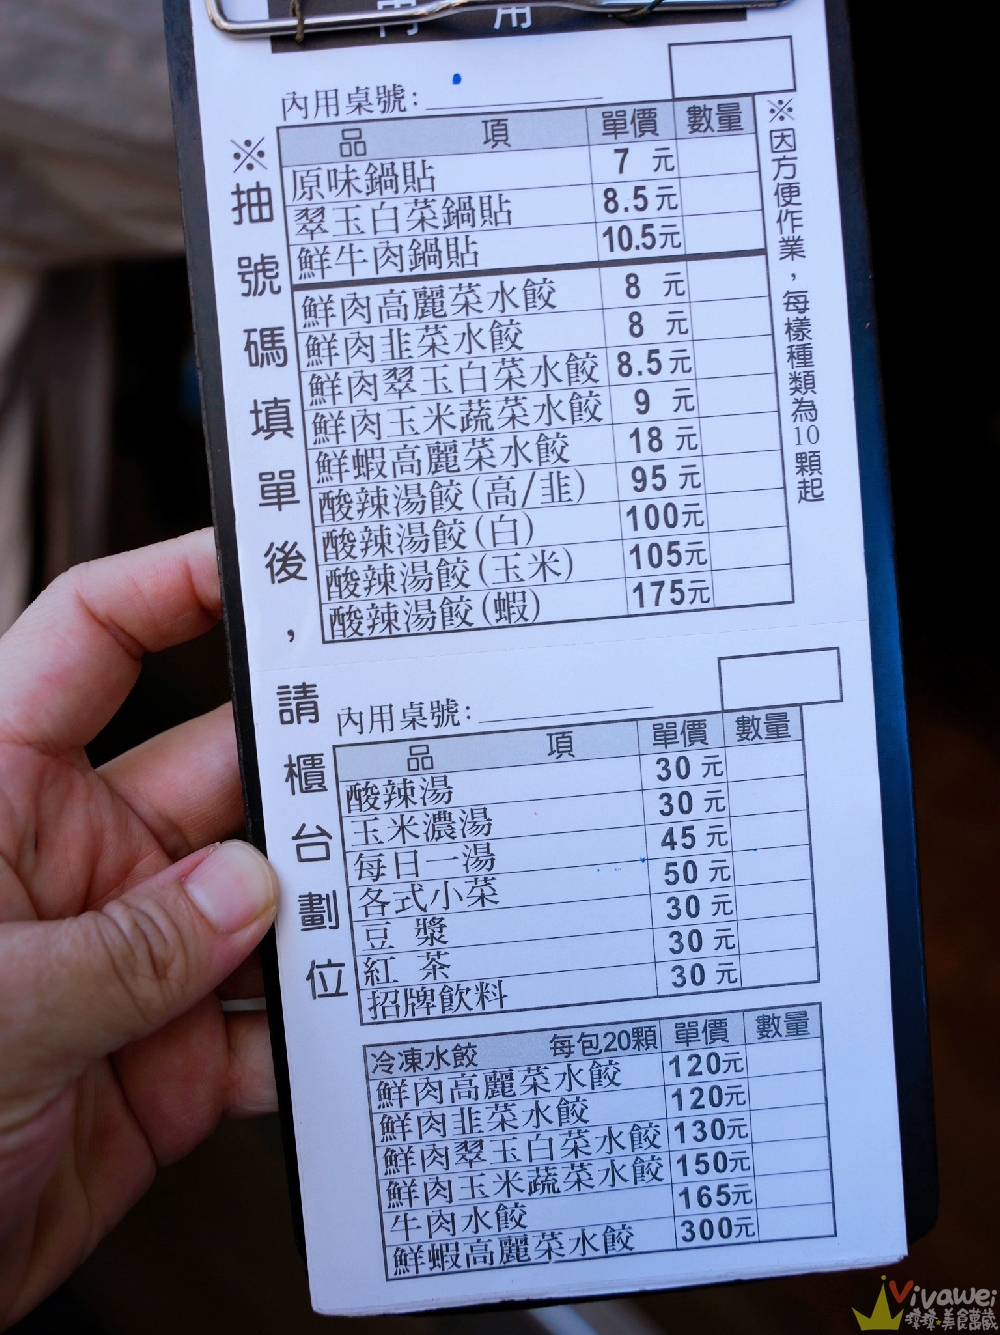 內用
內用桌號:
品 項 單價 數量
原味鍋貼 7 元
翠玉白菜鍋貼 8.5元
鮮牛肉鍋貼 10.5元
鮮肉高麗菜水餃 8 元
鮮肉韭菜水餃 8 元
鮮肉翠玉白菜水餃 8.5元
鮮肉玉米蔬菜水餃 9 元
鮮蝦高麗菜水餃 18 元
酸辣湯餃(高/韭) 95 元
酸辣湯餃(白) 100元
酸辣湯餃(玉米) 105元
酸辣湯餃(蝦) 175元
※因方便作業，每樣種類為10顆起
※抽號碼填單後，請櫃台劃位
內用桌號:
品 項 單價 數量
酸辣湯 30 元
玉米濃湯 30 元
每日一湯 45 元
各式小菜 50 元
豆 漿 30 元
紅 茶 30 元
招牌飲料 30 元
冷凍水餃 每包20顆 單價 數量
鮮肉高麗菜水餃 120元
鮮肉韭菜水餃 120元
鮮肉翠玉白菜水餃 130元
鮮肉玉米蔬菜水餃 150元
牛肉水餃 165元
鮮蝦高麗菜水餃 300元
Vivawei
美食蕭藏